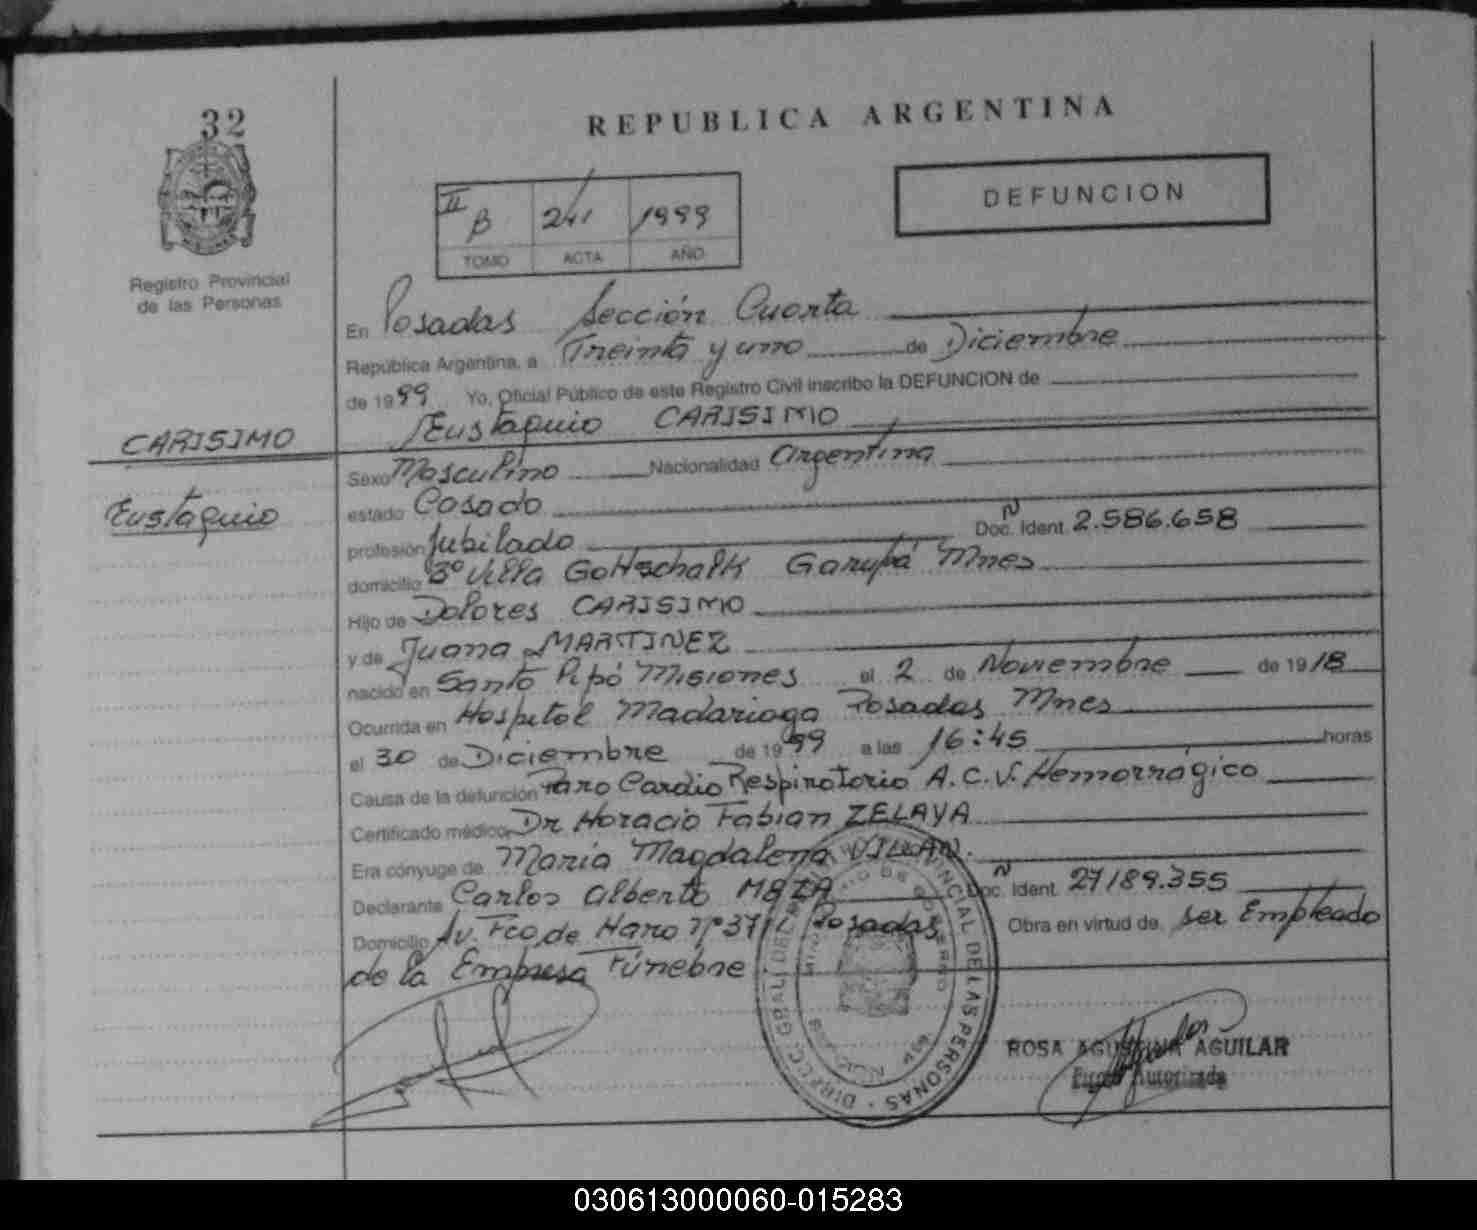 32
REPUBLICA ARGENTINA
DEFUNCION
II B 241 1999
TOMO ACTA AÑO
Registro Provincial
de las Personas
En Posadas Sección Cuarta
República Argentina, a Treinta y uno de Diciembre
de 1999 Yo, Oficial Público de este Registro Civil inscribo la DEFUNCION de
Eustaquio CARISIMO
CARISIMO
Eustaquio
Sexo Masculino Nacionalidad Argentina
estado Casado
profesión Jubilado Doc. Ident. Nº 2.586.658
domicilio Bº Villa Gottschalk Garupá Mnes
Hijo de Dolores CARISIMO
y de Juana MARTINEZ
nacido en Santo Pipó Misiones el 2 de Noviembre de 1918
Ocurrida en Hospital Madariaga Posadas Mnes
el 30 de Diciembre de 1999 a las 16:45 horas
Causa de la defunción Paro Cardio Respiratorio A.C.V. Hemorrágico
Certificado médico Dr Horacio Fabian ZELAYA
Era cónyuge de Maria Magdalena
Declarante Carlos Alberto MEZA Doc. Ident. Nº 27189.355
Domicilio Av. Fco de Haro Nº Posadas Obra en virtud de ser Empleado
de la Empresa Fúnebre
DIREC. GRAL. DEL REG. PROVINCIAL DE LAS PERSONAS
MINISTERIO DE GOBIERNO
ROSA AGUSTINA AGUILAR
Firma Autorizada
030613000060-015283